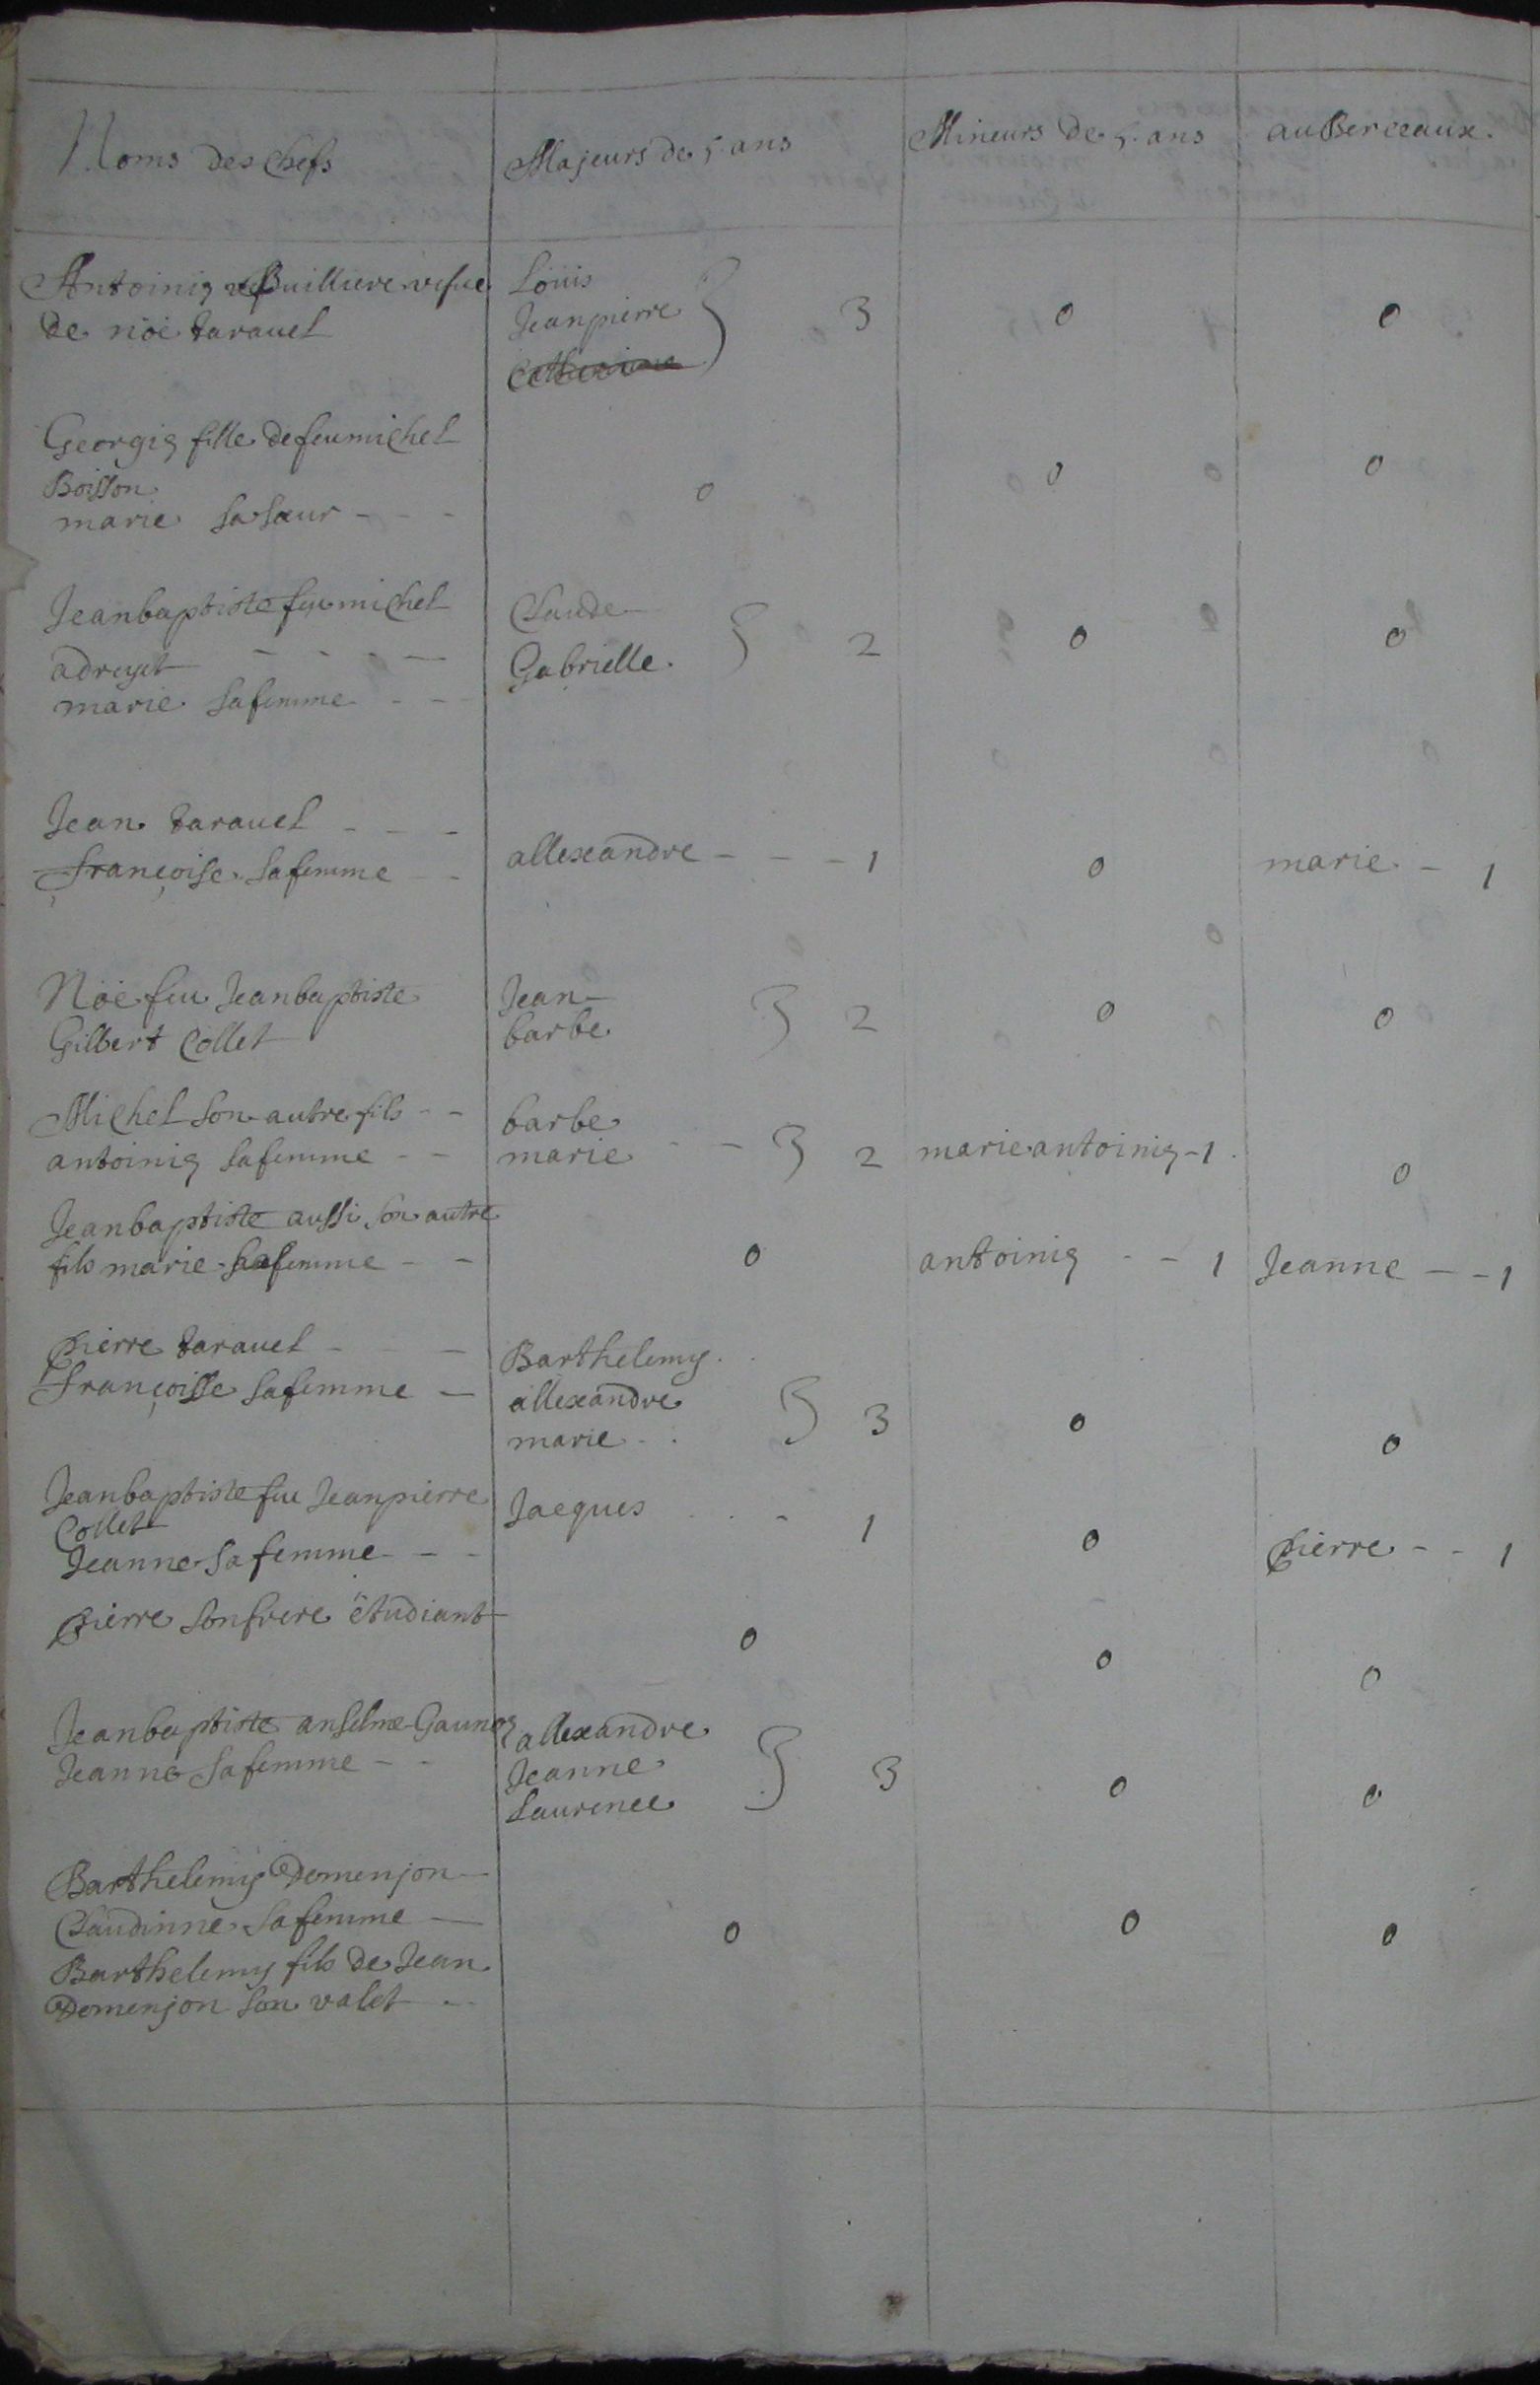 Noms des Chefs
Majeurs de 5. ans
Mineurs de 5. ans
au Berceaux.
Antoinig Builliere vefue
de nöe taravel
Loüis
Jeanpierre
3
0
0
Georgig fille de feu michel
Boisson
marie sa sœur - - -
0
0
0
Jeanbaptiste feu michel
adruyt - - - -
marie sa femme - -
Claude
Gabrielle.
2
0
0
Jean taravel - - -
françoise sa femme - -
allexandre - - - 1
0
marie - 1
Nöe feu Jeanbaptiste
Gilbert Collet
Jean
barbe
2
0
0
Michel son autre fils - -
antoinig sa femme - -
barbe
marie - -
2
marie antoinig - 1.
0
Jeanbaptiste aussi son autre
fils marie sa femme - -
0
antoinig - - 1
Jeanne - - 1
pierre taravel - - -
françoisse sa femme -
Barthelemy . .
allexandre
marie . .
3
0
0
Jeanbaptiste feu Jeanpierre
Collet
Jeanne sa femme - -
Jacques . . - 1
0
pierre - - 1
pierre son frere étudiant
0
0
0
Jeanbaptiste anselme
Jeanne sa femme - -
allexandre
Jeanne
Laurence
3
0
0
Barthelemy Domenjon
Claudinne sa femme
Barthelemy fils de Jean
Domenjon son valet - -
0
0
0